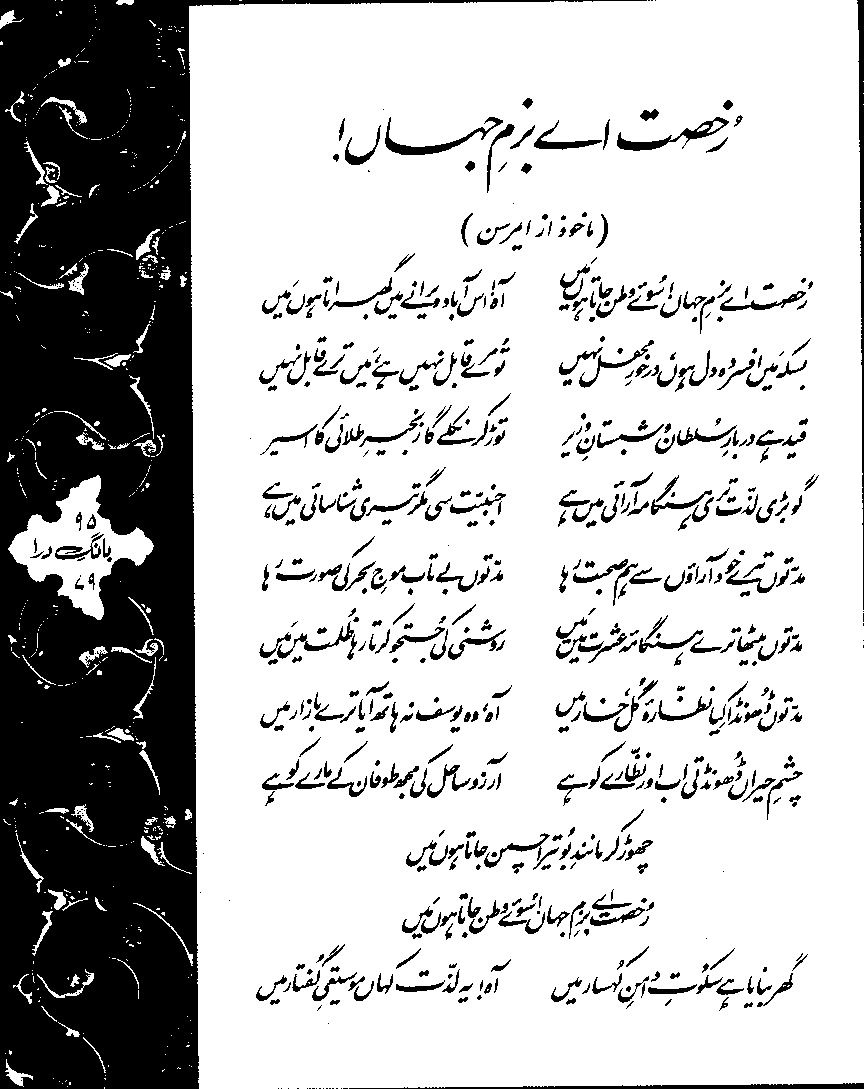 رُخصت اے بزمِ جہاں!
(ماخوذ از ایمرسن)
رُخصت اے بزمِ جہاں! سُوئے وطن جاتا ہوں مَیں آہ! اس آباد ویرانے میں گھبراتا ہوں مَیں
بسکہ مَیں افسردہ دل ہوں، درخورِ محفل نہیں تُو مرے قابل نہیں ہے، مَیں ترے قابل نہیں
قید ہے دربارِ سُلطان و شبستانِ وزیر توڑ کر نکلے گا زنجیرِ طلائی کا اسیر
گو بڑی لذّت تری ہنگامہ آرائی میں ہے اجنبیّت سی مگر تیری شناسائی میں ہے
مدّتوں تیرے خود آراؤں سے ہم صحبت رہا مدّتوں بے تاب موجِ بحر کی صورت رہا
مدّتوں بیٹھا ترے ہنگامۂ عشرت میں مَیں روشنی کی جُستجو کرتا رہا ظُلمت میں مَیں
مدّتوں ڈھُونڈا کیا نظّارۂ گُل، خار میں آہ، وہ یوسف نہ ہاتھ آیا ترے بازار میں
چشمِ حیراں ڈھُونڈتی اب اور نظّارے کو ہے آرزو ساحل کی مجھ طوفان کے مارے کو ہے
چھوڑ کر مانندِ بُو تیرا چمن جاتا ہوں مَیں
رُخصت اے بزمِ جہاں! سُوئے وطن جاتا ہوں مَیں
گھر بنایا ہے سکُوتِ دامنِ کُہسار میں آہ! یہ لذّت کہاں موسیقیِ گُفتار میں
۹۵
بانگِ درا
۷۹